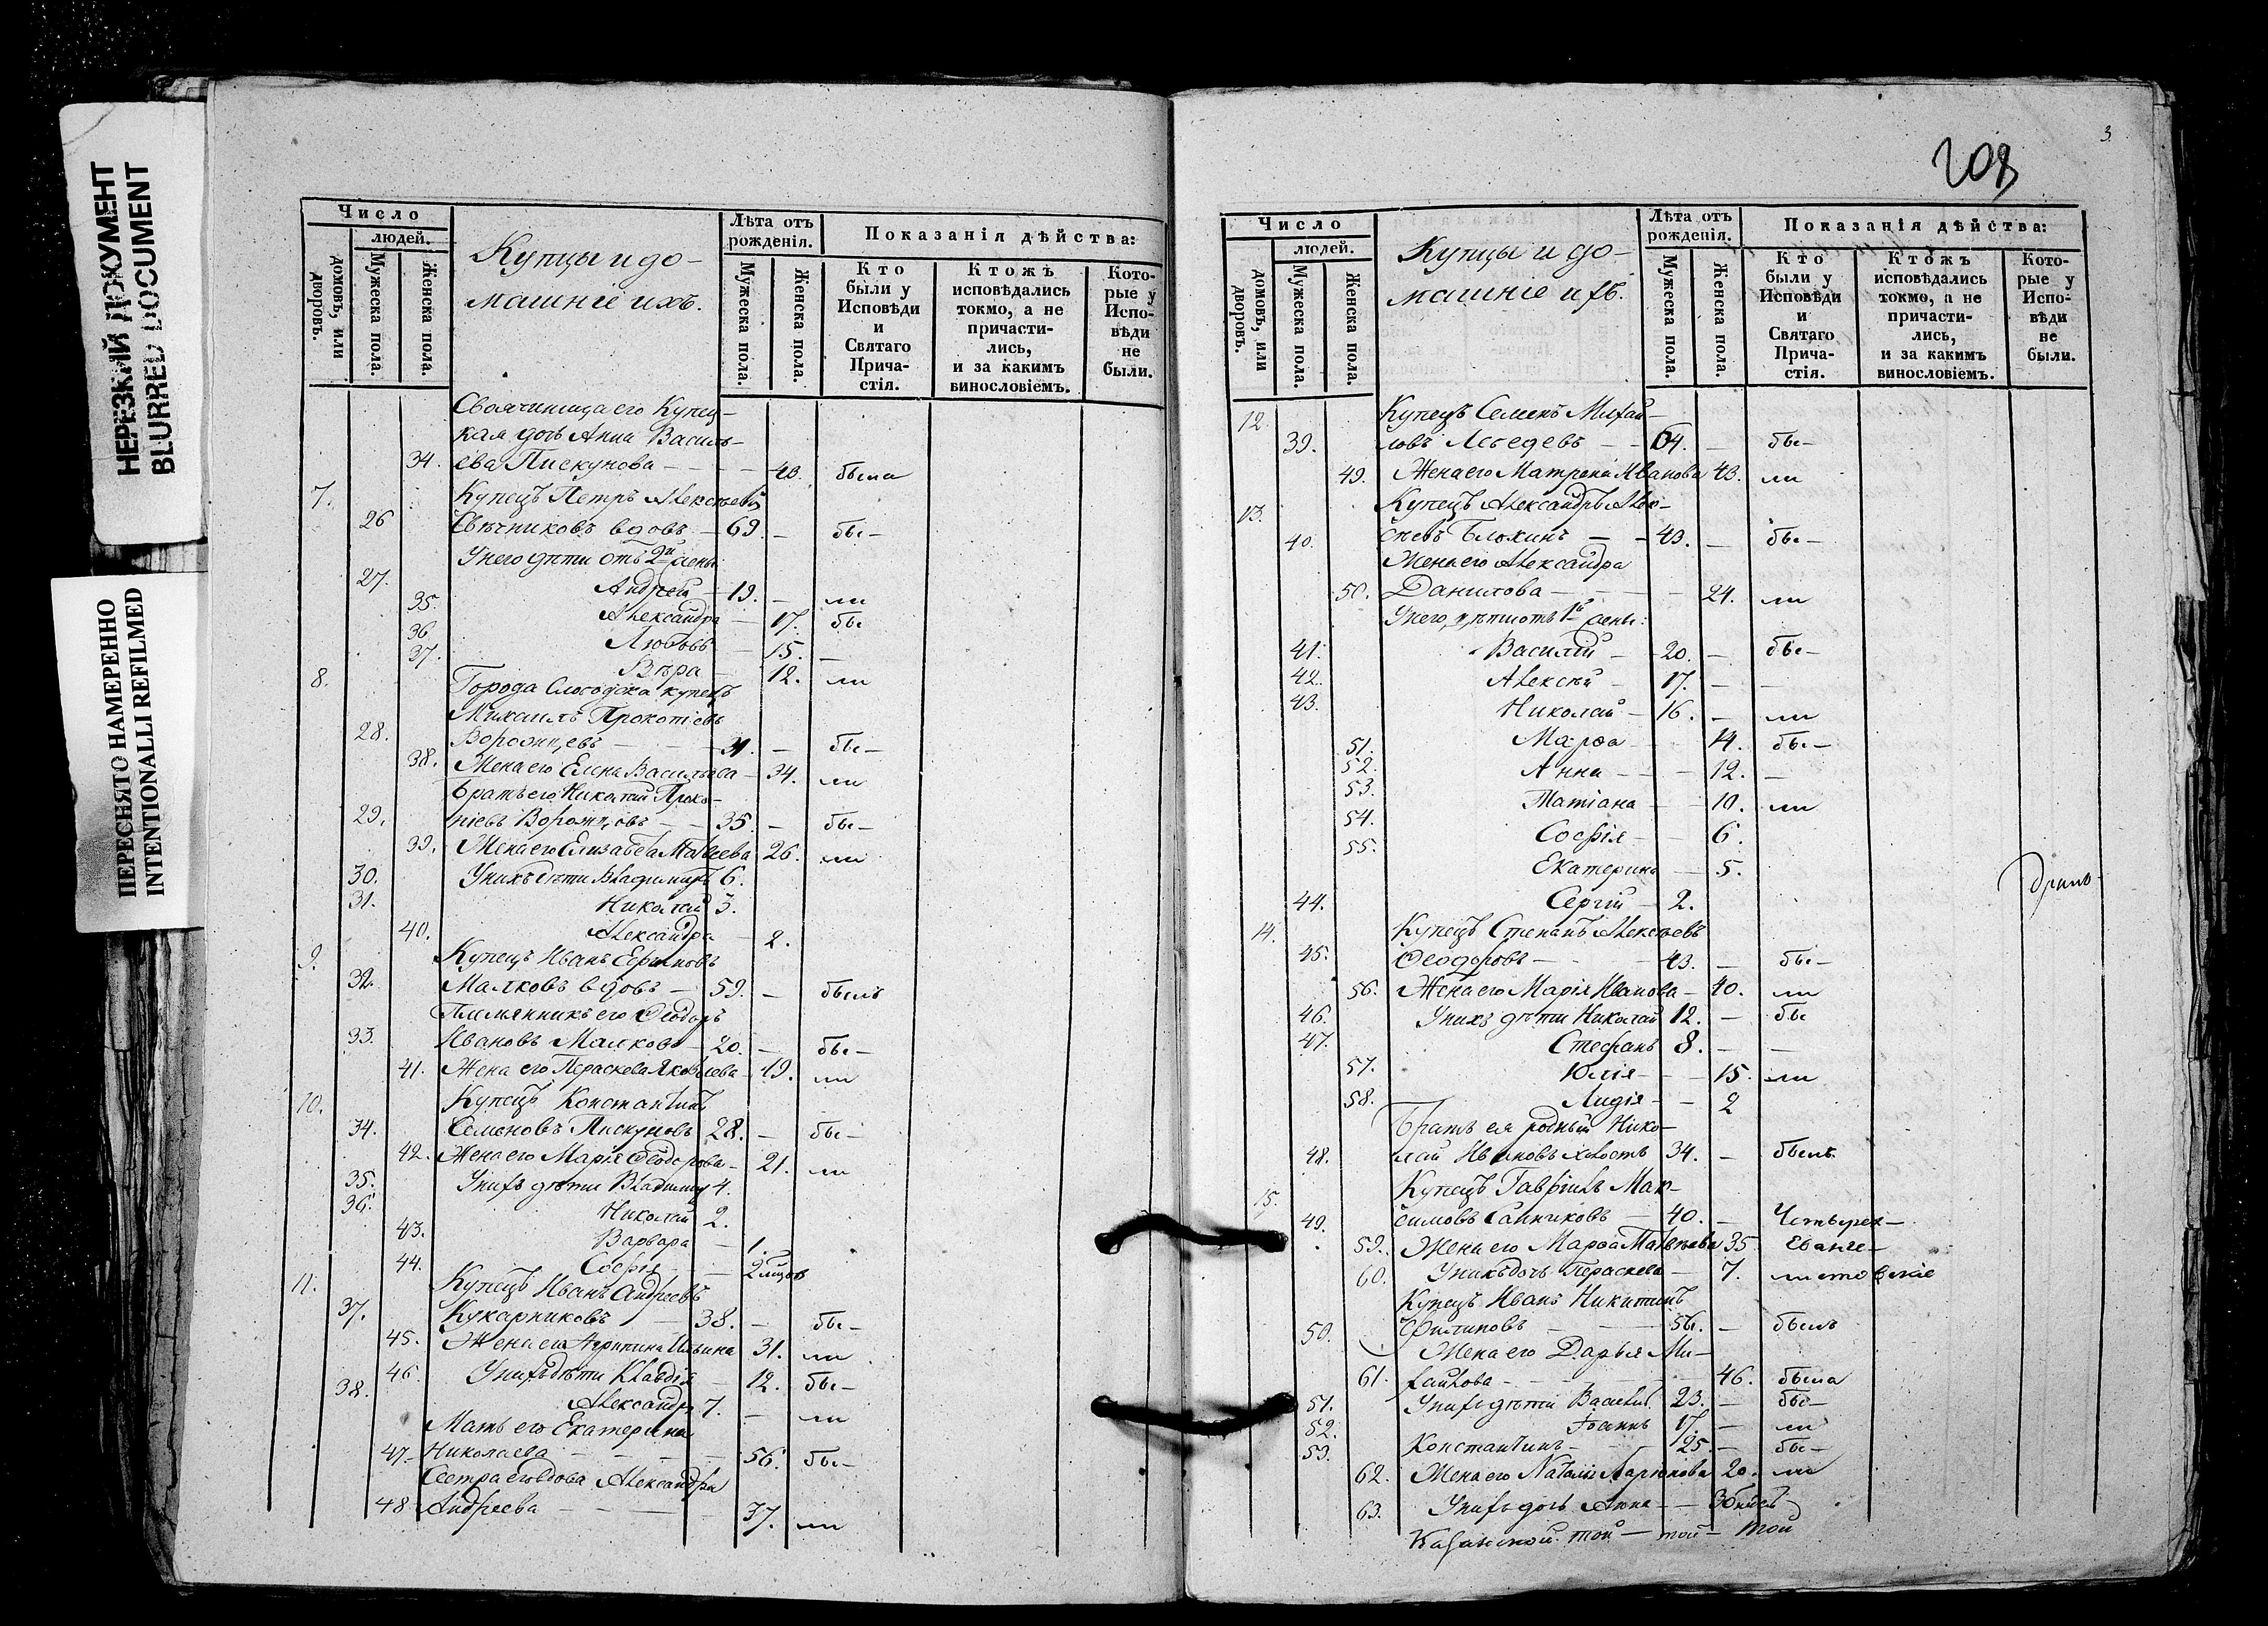 НЕРЕЗКИЙ ДОКУМЕНТ
BLURRED DOCUMENT
ПЕРЕСНЯТО НАМЕРЕННО
INTENTIONALLI REFILMED
Число
людей.
домовъ, или дворовъ.
Мужеска пола.
Женска пола.
Купцы и до-
машніе ихъ.
Лѣта отъ рожденія.
Мужеска пола.
Женска пола.
Показанія дѣйства:
Кто были у Исповѣди и Святаго Прича-стія.
Ктожъ исповѣдались токмо, а не причасти-лись, и за какимъ винословіемъ.
Кото-рые у Испо-вѣди не были.
Своячиница его Купец-
кая дочь Анна Василь-
34. ева Пискунова - 43. была
7. Купецъ Петръ Алексѣевъ
26 Свѣчниковъ вдовъ - 69. - бы-
У него дѣти отъ 2й жены
27. Андрей - 19. - ли
35. Александра - 17. бы
36 Любовь - 15. -
37. Вѣра - 12. ли
8. Города Слободска купецъ
Михаилъ Прокопіевъ
28. Ворожцовъ - 31. - бы-
38. Жена его Елена Васильева - 34. ли
Братъ его Николай Проко-
29. піевъ Ворожцовъ - 35. - бы-
39. Жена его Елизавета Матвѣева 26. ли
30. У нихъ дѣти Владимиръ 6.
31. Николай 3.
40. Александра - 2.
9. Купецъ Иванъ Ефимовъ
32. Малковъ вдовъ - 59. - былъ
Племянникъ его Ѳеодоръ
33. Ивановъ Малковъ - 20. - бы-
41. Жена его Параскева Яковлева - 19. ли
10. Купецъ Константинъ
34. Семеновъ Пискуновъ 28. - бы-
42. Жена его Марія Ѳеодорова - 21. ли
35. У нихъ дѣти Владимиръ 4.
36. Николай 2.
43. Варвара - 1.
44. Софія - 2 мѣсяц.
11. Купецъ Иванъ Андреевъ
37. Кукарниковъ - 38. - бы-
45. Жена его Агрипина Ильина 31. ли
46. У нихъ дѣти Клавдія - 12. бы-
38. Александръ 7. - ли
Мать его Екатерина
47. Николаева - 56. бы-
Сестра его вдова Александра
48 Андреева - 37. ли
3.
208
Число
людей.
домовъ, или дворовъ.
Мужеска пола.
Женска пола.
Купцы и до-
машніе ихъ.
Лѣта отъ рожденія.
Мужеска пола.
Женска пола.
Показанія дѣйства:
Кто были у Исповѣди и Святаго Прича-стія.
Ктожъ исповѣдались токмо, а не причасти-лись, и за какимъ винословіемъ.
Кото-рые у Испо-вѣди не были.
12. Купецъ Семенъ Михай-
39. ловъ Лебедевъ - - 64. - бы-
49. Жена его Матрена Иванова 43. ли
13. Купецъ Александръ Алек-
40. сѣевъ Блохинъ - - 43. - бы-
Жена его Александра
50. Данилова - 24. ли
У него дѣти отъ 1й жены:
41. Василій - 20. - бы-
42. Алексѣй - 17. - -
43. Николай - 16. - ли
51. Марѳа - 14. бы-
52. Анна - 12. -
53. Татіана - 10. ли
54. Софія - 6.
55. Екатерина - 5.
44. Сергій - 2.
14. Купецъ Степанъ Алексѣевъ
45. Ѳеодоровъ - 43. - бы-
56. Жена его Марія Иванова - 40. ли
46. У нихъ дѣти Николай 12. - бы
47. Стефанъ 8. - -
57. Юлія - 15. ли
58. Лидія - 2
Братъ ея родный Нико-
48. лай Ивановъ холостъ 34. - былъ
15. Купецъ Гавріилъ Мак-
49. симовъ Санниковъ - 40. - Четырех-
59. Жена его Марѳа Матвѣева 35 Еванге-
60. У нихъ дочь Параскева - 7. листовскіе
Купецъ Иванъ Никитинъ
50. Филиповъ - 56. - былъ
Жена его Дарья Ми-
61. хайлова - 46. была
51. У нихъ дѣти Василій 23. - бы-
52. Іоаннъ 17. - ли
53. Константинъ - 25. - бы-
62. Жена его Наталія Ларіонова 20. ли
63. У нихъ дочь Анна - - 3
Казанской